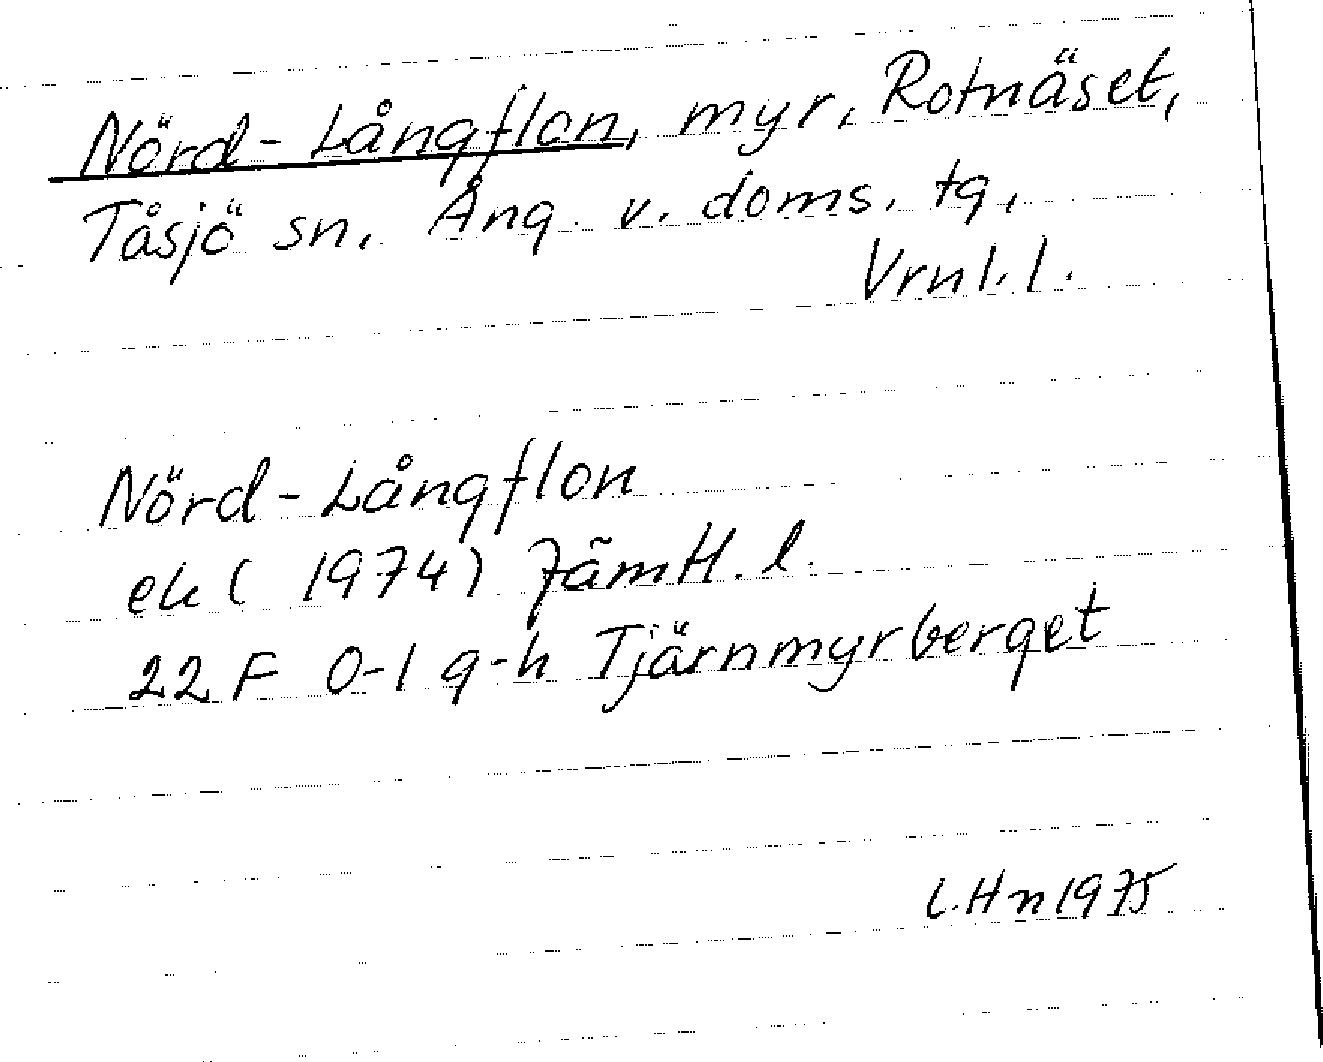 Nörd-Långflon, myr, Rotnäset,
Tåsjö sn, Ång. v. doms. tg,
Vrnl. l.
Nörd-Långflon
ek (1974) Jämtl. l.
22 F 0-1 g-h Tjärnmyrberget
L.Hn 1975